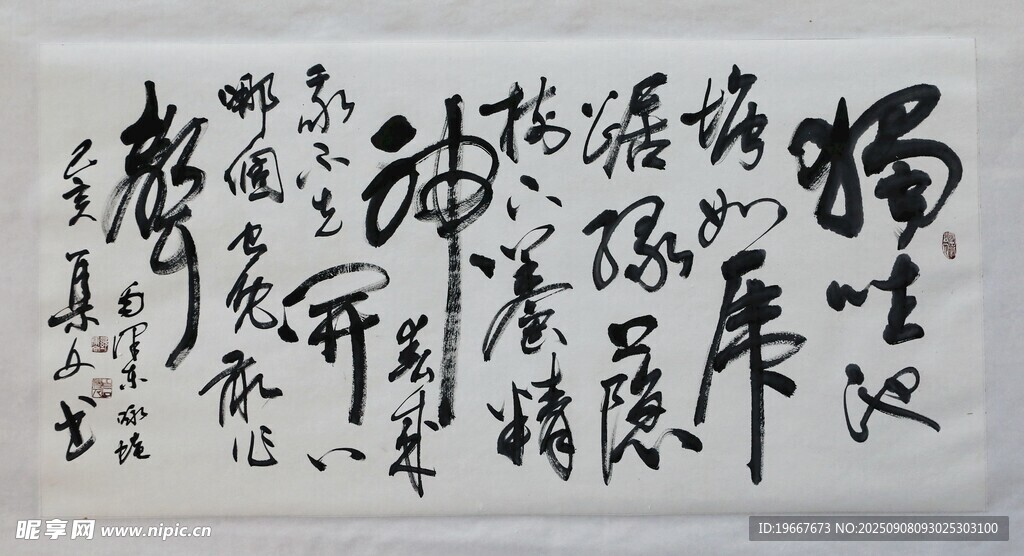 獨坐池
塘如虎
踞綠蔭
樹下養精
神春來
我不先開口
哪個虫兒敢作
聲
毛澤东咏蛙
己亥集文书
昵享网 www.nipic.cn
ID:19667673 NO:20250908093025303100